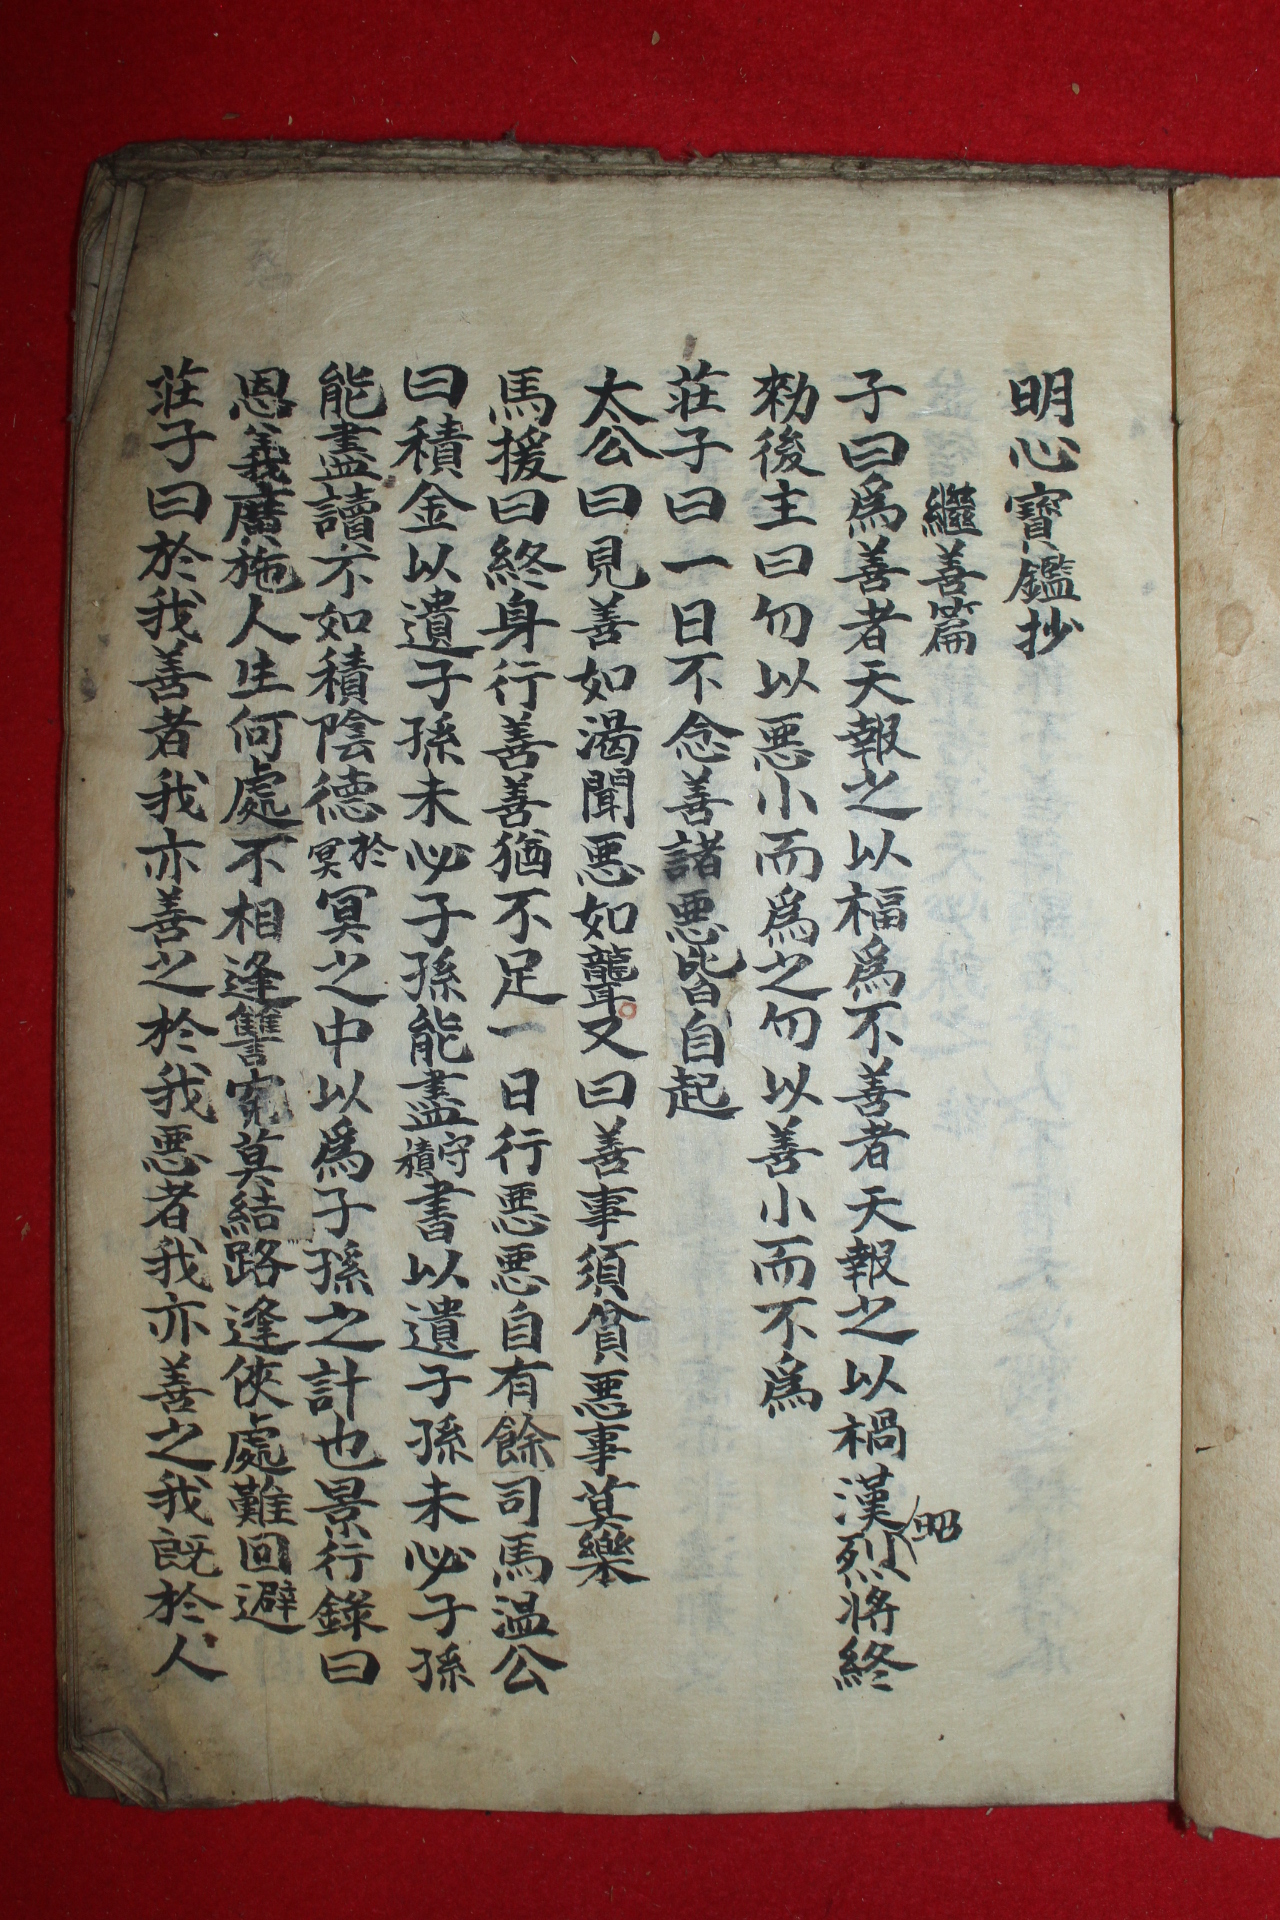 明心寶鑑抄
繼善篇
子曰爲善者天報之以福爲不善者天報之以禍漢昭烈將終
勑後主曰勿以悪小而爲之勿以善小而不爲
莊子曰一日不念善諸悪皆自起
太公曰見善如渴聞悪如聾又曰善事須貪悪事莫樂
馬援曰終身行善善猶不足一日行悪悪自有餘司馬温公
曰積金以遺子孫未必子孫能盡守積書以遺子孫未必子孫
能盡讀不如積陰德於冥冥之中以爲子孫之計也景行錄曰
恩義廣施人生何處不相逢讐寃莫結路逢俠處難回避
莊子曰於我善者我亦善之於我悪者我亦善之我既於人